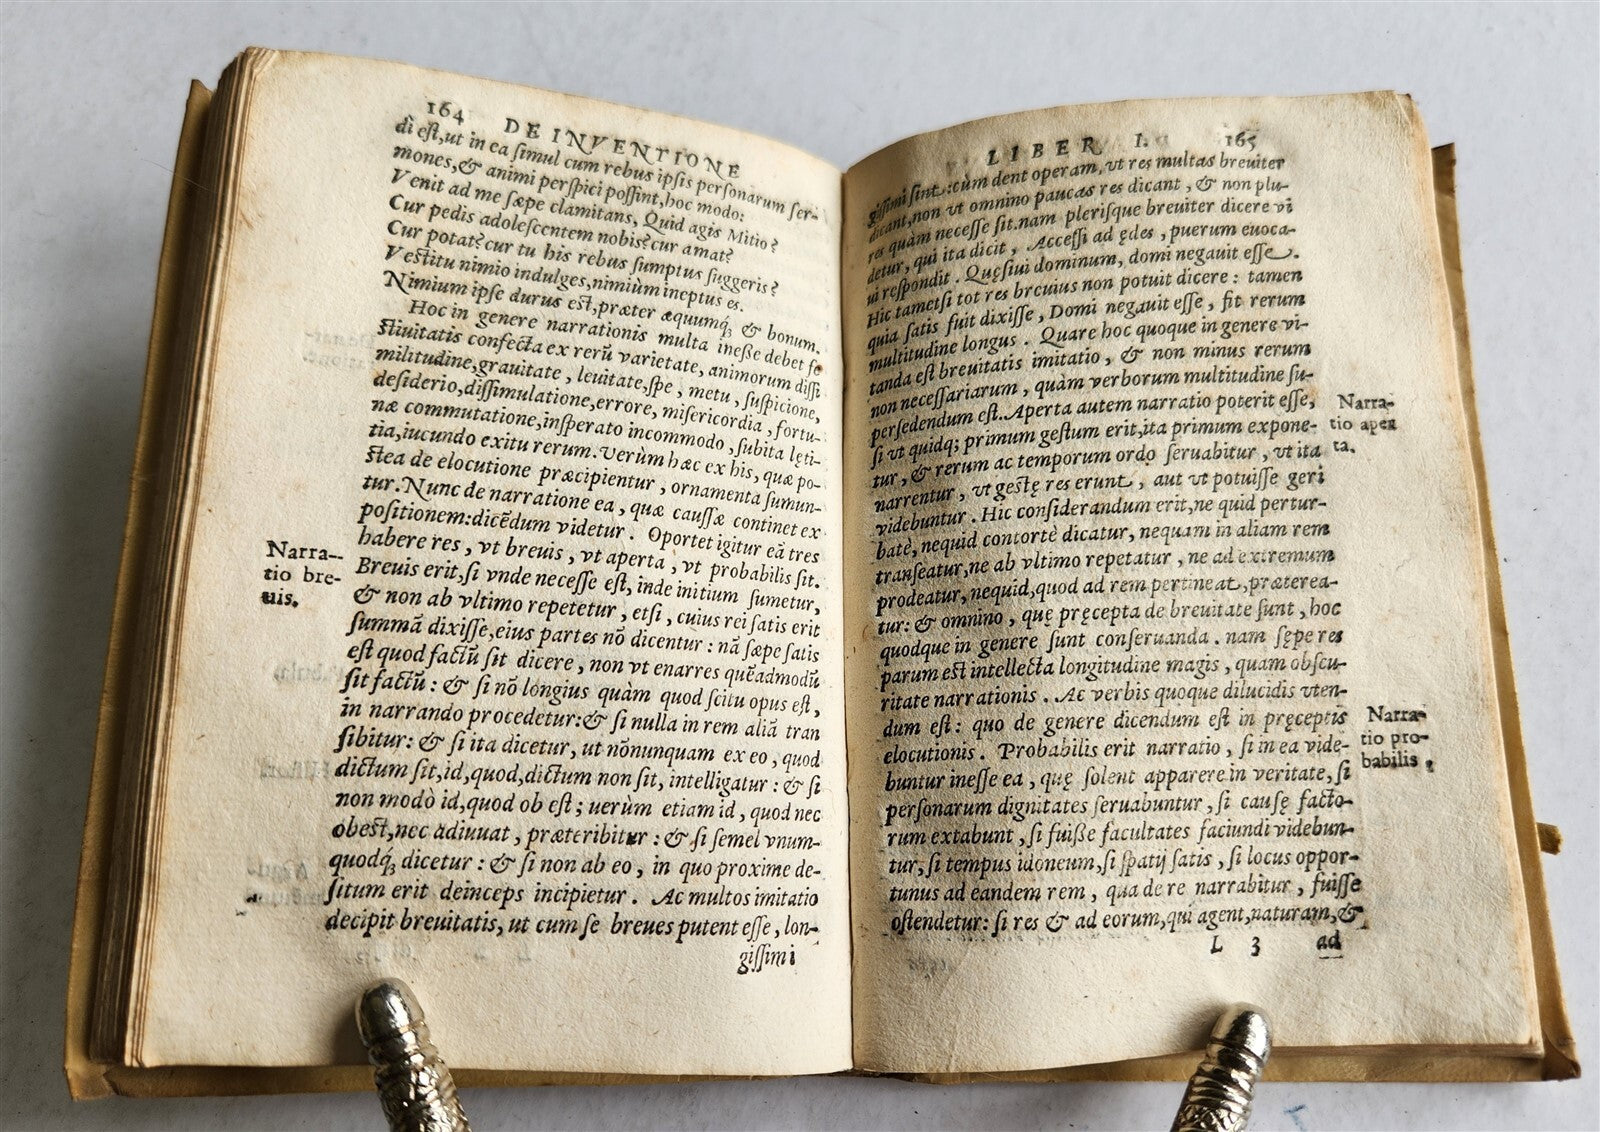 164 DE INVENTIONE
di est,ut in ea simul cum rebus ipsis personarum ser-
mones,& animi perspici possint,hoc modo:
Venit ad me sæpe clamitans, Quid agis Mitio?
Cur pedis adolescentem nobis?cur amat?
Cur potat?cur tu his rebus sumptus suggeris?
Vestitu nimio indulges,nimiùm ineptus es.
Nimium ipse durus est,præter æquumq́; & bonum.
Hoc in genere narrationis multa inesse debet fe
stiuitatis confecta ex rerū varietate, animorum dissi
militudine,grauitate, leuitate,spe, metu, suspicione,
desiderio,dissimulatione,errore, misericordia, fortu-
næ commutatione,insperato incommodo, subita lęti-
tia,iucundo exitu rerum. Verùm hæc ex his, quæ po-
stea de elocutione præcipientur, ornamenta sumun-
tur. Nunc de narratione ea, quæ caussæ continet ex
positionem:dicēdum videtur. Oportet igitur eā tres
habere res, vt breuis, vt aperta, vt probabilis sit.
Narra--
tio bre-
uis.
Breuis erit,si vnde necesse est, inde initium sumetur,
& non ab vltimo repetetur, etsi, cuius rei satis erit
summā dixisse,eius partes nō dicentur: nā sæpe satis
est quod factū sit dicere, non vt enarres quēadmodū
sit factū: & si nō longius quàm quod scitu opus est,
in narrando procedetur:& si nulla in rem aliā tran
sibitur: & si ita dicetur, ut nōnunquam ex eo, quod
dictum sit,id,quod,dictum non sit, intelligatur: & si
non modò id,quod ob est; uerùm etiam id, quod nec
obest,nec adiuuat, præteribitur: & si semel vnum-
quodq́; dicetur: & si non ab eo, in quo proxime de-
situm erit deinceps incipietur. Ac multos imitatio
decipit breuitatis, ut cum se breues putent esse, lon-
gissimi
LIBER I. 165
gissimi sint:cùm dent operam, vt res multas breuiter
dicant,non vt omnino paucas res dicant, & non plu-
res quàm necesse sit.nam plerisque breuiter dicere vi
detur, qui ita dicit, Accessi ad ędes, puerum euoca-
ui respondit. Quęsiui dominum, domi negauit esse.
Hic tametsi tot res breuius non potuit dicere: tamen
quia satis fuit dixisse, Domi negauit esse, fit rerum
multitudine longus. Quare hoc quoque in genere vi-
tanda est breuitatis imitatio, & non minus rerum
non necessariarum, quàm verborum multitudine su-
persedendum est. Aperta autem narratio poterit esse,
Narra-
tio aper
ta.
si vt quidq; primum gestum erit,ita primum expone-
tur, & rerum ac temporum ordo seruabitur, vt ita
narrentur, vt gestę res erunt, aut vt potuisse geri
videbuntur. Hic considerandum erit,ne quid pertur-
batè, nequid contortè dicatur, nequam in aliam rem
transeatur,ne ab vltimo repetatur, ne ad extremum
prodeatur, nequid,quod ad rem pertineat,præterea-
tur: & omnino, quę pręcepta de breuitate sunt, hoc
quodque in genere sunt conseruanda. nam sępe res
parum est intellecta longitudine magis, quam obscu-
ritate narrationis. Ac verbis quoque dilucidis vten-
dum est: quo de genere dicendum est in pręceptis
elocutionis. Probabilis erit narratio, si in ea vide-
Narra-
tio pro-
babilis,
buntur inesse ea, quę solent apparere in veritate, si
personarum dignitates seruabuntur, si causę facto-
rum extabunt, si fuisse facultates faciundi videbun-
tur, si tempus idoneum,si spatij satis, si locus oppor-
tunus ad eandem rem, qua de re narrabitur, fuisse
ostendetur: si res & ad eorum,qui agent,naturam,&
L 3 ad